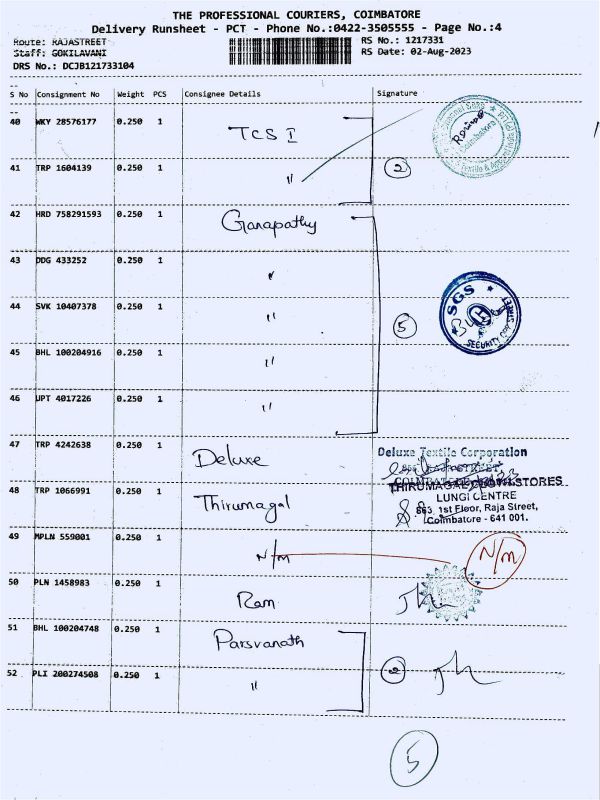 THE PROFESSIONAL COURIERS, COIMBATORE
Delivery Runsheet - PCT - Phone No.:0422-3505555 - Page No.:4
Route: RAJASTREET
RS No.: 1217331
Staff: GOKILAVANI
RS Date: 02-Aug-2023
DRS No.: DCJB121733104
S No Consignment No Weight PCS Consignee Details Signature
40 WKY 28576177 0.250 1 TCS I
41 TRP 1604139 0.250 1 〃 2
42 HRD 758291593 0.250 1 Ganapathy
43 DDG 433252 0.250 1 〃
44 SVK 10407378 0.250 1 〃 5
SGS
SECURITY
STREET
45 BHL 100204916 0.250 1 〃
46 UPT 4017226 0.250 1 〃
47 TRP 4242638 0.250 1 Deluxe
Deluxe Textile Corporation
48 TRP 1066991 0.250 1 Thirumagal
LUNGI CENTRE
863, 1st Floor, Raja Street,
Coimbatore - 641 001.
49 MPLN 559001 0.250 1 N/m N/m
50 PLN 1458983 0.250 1 Ram
51 BHL 100204748 0.250 1 Parsvanath
52 PLI 200274508 0.250 1 〃 2
5